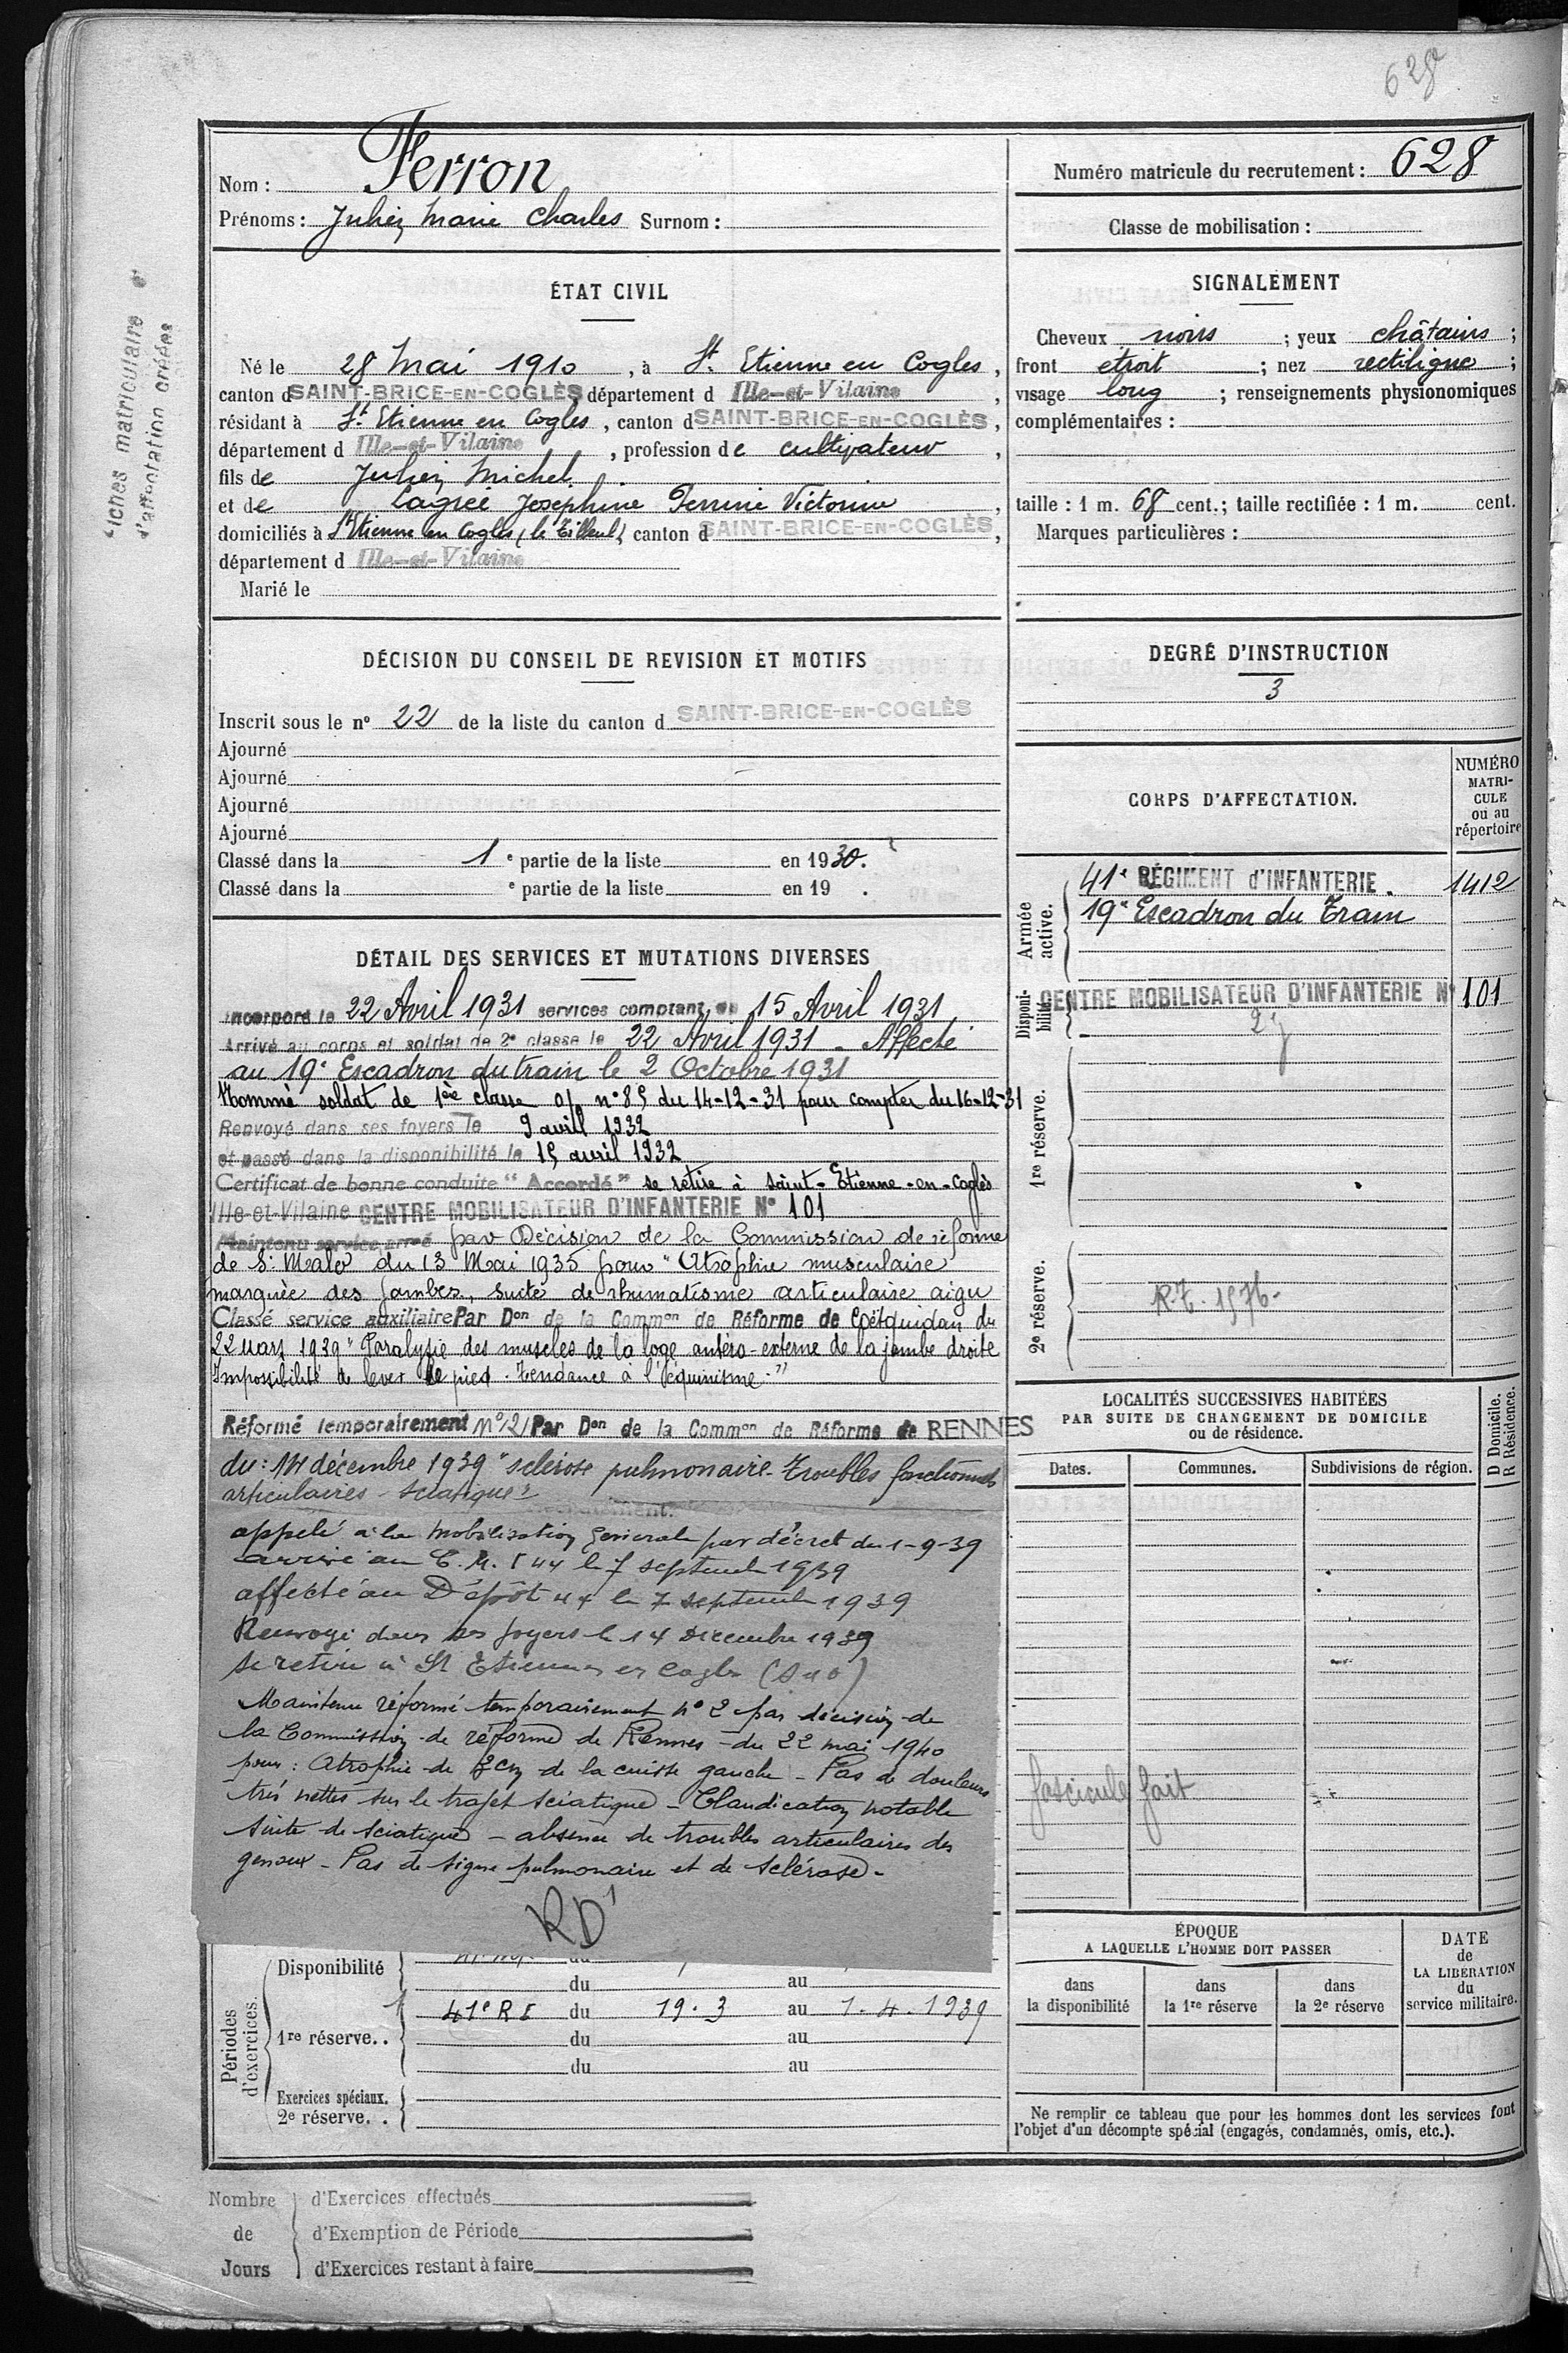 628
Fiches matriculaire et
d'affectation créées
Nom : Ferron
Prénoms : Julien Marie Charles Surnom :
Numéro matricule du recrutement : 628
Classe de mobilisation :
ÉTAT CIVIL
Né le 28 Mai 1910, à St. Etienne en Cogles,
canton d SAINT-BRICE-EN-COGLÈS, département d Ille-et-Vilaine,
résidant à St. Etienne en Cogles, canton d SAINT-BRICE-EN-COGLÈS,
département d Ille-et-Vilaine, profession de cultivateur,
fils de Julien Michel
et de Lagrée Joséphine Perrine Victorine,
domiciliés à St Etienne en Cogles (le Tilleul), canton d SAINT-BRICE-EN-COGLÈS,
département d Ille-et-Vilaine
Marié le
SIGNALEMENT
Cheveux noirs ; yeux châtains ;
front etroit ; nez rectiligne ;
visage long ; renseignements physionomiques
complémentaires :
taille : 1 m. 68 cent. ; taille rectifiée : 1 m. cent.
Marques particulières :
DÉCISION DU CONSEIL DE REVISION ET MOTIFS
Inscrit sous le nº 22 de la liste du canton d SAINT-BRICE-EN-COGLÈS
Ajourné
Ajourné
Ajourné
Ajourné
Classé dans la 1 e partie de la liste en 1930.
Classé dans la e partie de la liste en 19 .
DEGRÉ D'INSTRUCTION
3
CORPS D'AFFECTATION.
NUMÉRO
MATRI-
CULE
ou au
répertoire
Armée
active.
41e RÉGIMENT d'INFANTERIE. 1412
19e Escadron du Train
Disponi-
bilité.
CENTRE MOBILISATEUR D'INFANTERIE Nº 101
1re réserve.
2e réserve.
R.T. 1576-
DÉTAIL DES SERVICES ET MUTATIONS DIVERSES
Incorporé le 22 Avril 1931 services comptant du 15 Avril 1931
Arrivé au corps et soldat de 2e classe le 22 Avril 1931. Affecté
au 19e Escadron du train le 2 Octobre 1931
Nommé soldat de 1ère classe O/ nº 85 du 14-12-31 pour compter du 16-12-31
Renvoyé dans ses foyers le 9 avril 1932
et passé dans la disponibilité le 15 avril 1932
Certificat de bonne conduite "Accordé" se retire à Saint-Etienne-en-Coglès
Ille-et-Vilaine CENTRE MOBILISATEUR D'INFANTERIE Nº 101
Maintenu service armé par Décision de la Commission de réforme
de St Malo du 13 Mai 1935 pour "Atrophie musculaire
marquée des jambes, suite de rhumatisme articulaire aigu
Classé service auxiliaire Par Don de la Common de Réforme de Coëtquidan du
22 Mars 1939 "Paralysie des muscles de la loge antéro-externe de la jambe droite
Impossibilité de lever le pied. Tendance à l'équinisme."
Réformé temporairement Nº 2 Par Don de la Common de Réforme de RENNES
du : 14 décembre 1939 "sclérose pulmonaire. Troubles fonctionnels
articulaires - Sciatique"
appelé à la mobilisation générale par décret du 1-9-39
arrivé au C.M.I 44 le 7 septembre 1939
affecté au Dépôt 44 le 7 septembre 1939
Renvoyé dans ses foyers le 14 Décembre 1939
se retire à St Etienne en Cogles
Maintenu réformé temporairement nº 2 par décision de
la Commission de réforme de Rennes du 22 mai 1940
pour : Atrophie de 2cm de la cuisse gauche - Pas de douleurs
très nettes sur le trajet sciatique - Claudication notable
suite de sciatique - absence de troubles articulaires des
genoux - Pas de signe pulmonaire et de sclérose -
RD'
LOCALITÉS SUCCESSIVES HABITÉES
PAR SUITE DE CHANGEMENT DE DOMICILE
ou de résidence.
D Domicile.
R Résidence.
Dates. Communes. Subdivisions de région.
fascicule fait
ÉPOQUE
A LAQUELLE L'HOMME DOIT PASSER
dans
la disponibilité
dans
la 1re réserve
dans
la 2e réserve
DATE
de
LA LIBÉRATION
du
service militaire.
Ne remplir ce tableau que pour les hommes dont les services font
l'objet d'un décompte spécial (engagés, condamnés, omis, etc.).
Périodes
d'exercices.
Disponibilité
du au
1re réserve..
41e R I du 19.3 au 1.4.1939
du au
du au
Exercices spéciaux.
2e réserve. .
Nombre
de
Jours
d'Exercices effectués
d'Exemption de Période
d'Exercices restant à faire